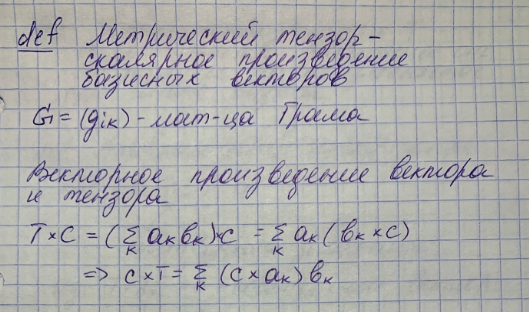 def Метрический тензор -
скалярное произведение
базисных векторов
G = (gᵢₖ) - мат-ца Грама
Векторное произведение вектора
и тензора
T×C = (∑ₖ aₖbₖ)·c = ∑ₖ aₖ(bₖ×c)
=> c×T = ∑ₖ (c×aₖ)bₖ